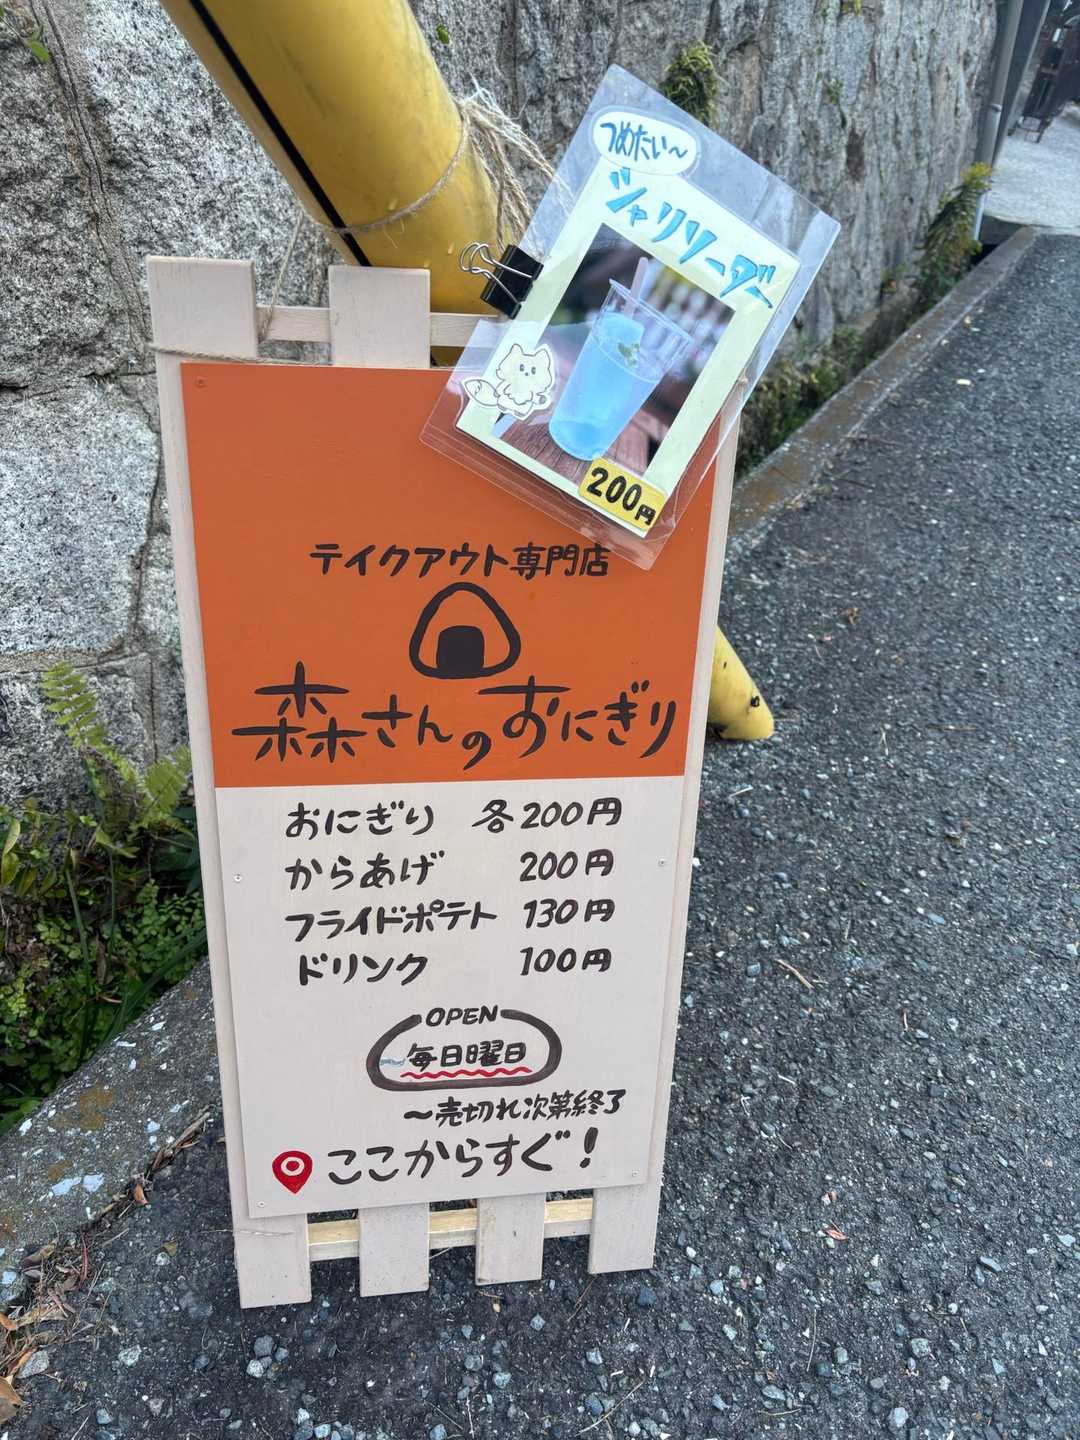 つめたい～
シャリソーダ
200円
テイクアウト専門店
森さんのおにぎり
おにぎり 各200円
からあげ 200円
フライドポテト 130円
ドリンク 100円
OPEN
毎日曜日
～売切れ次第終了
ここからすぐ！